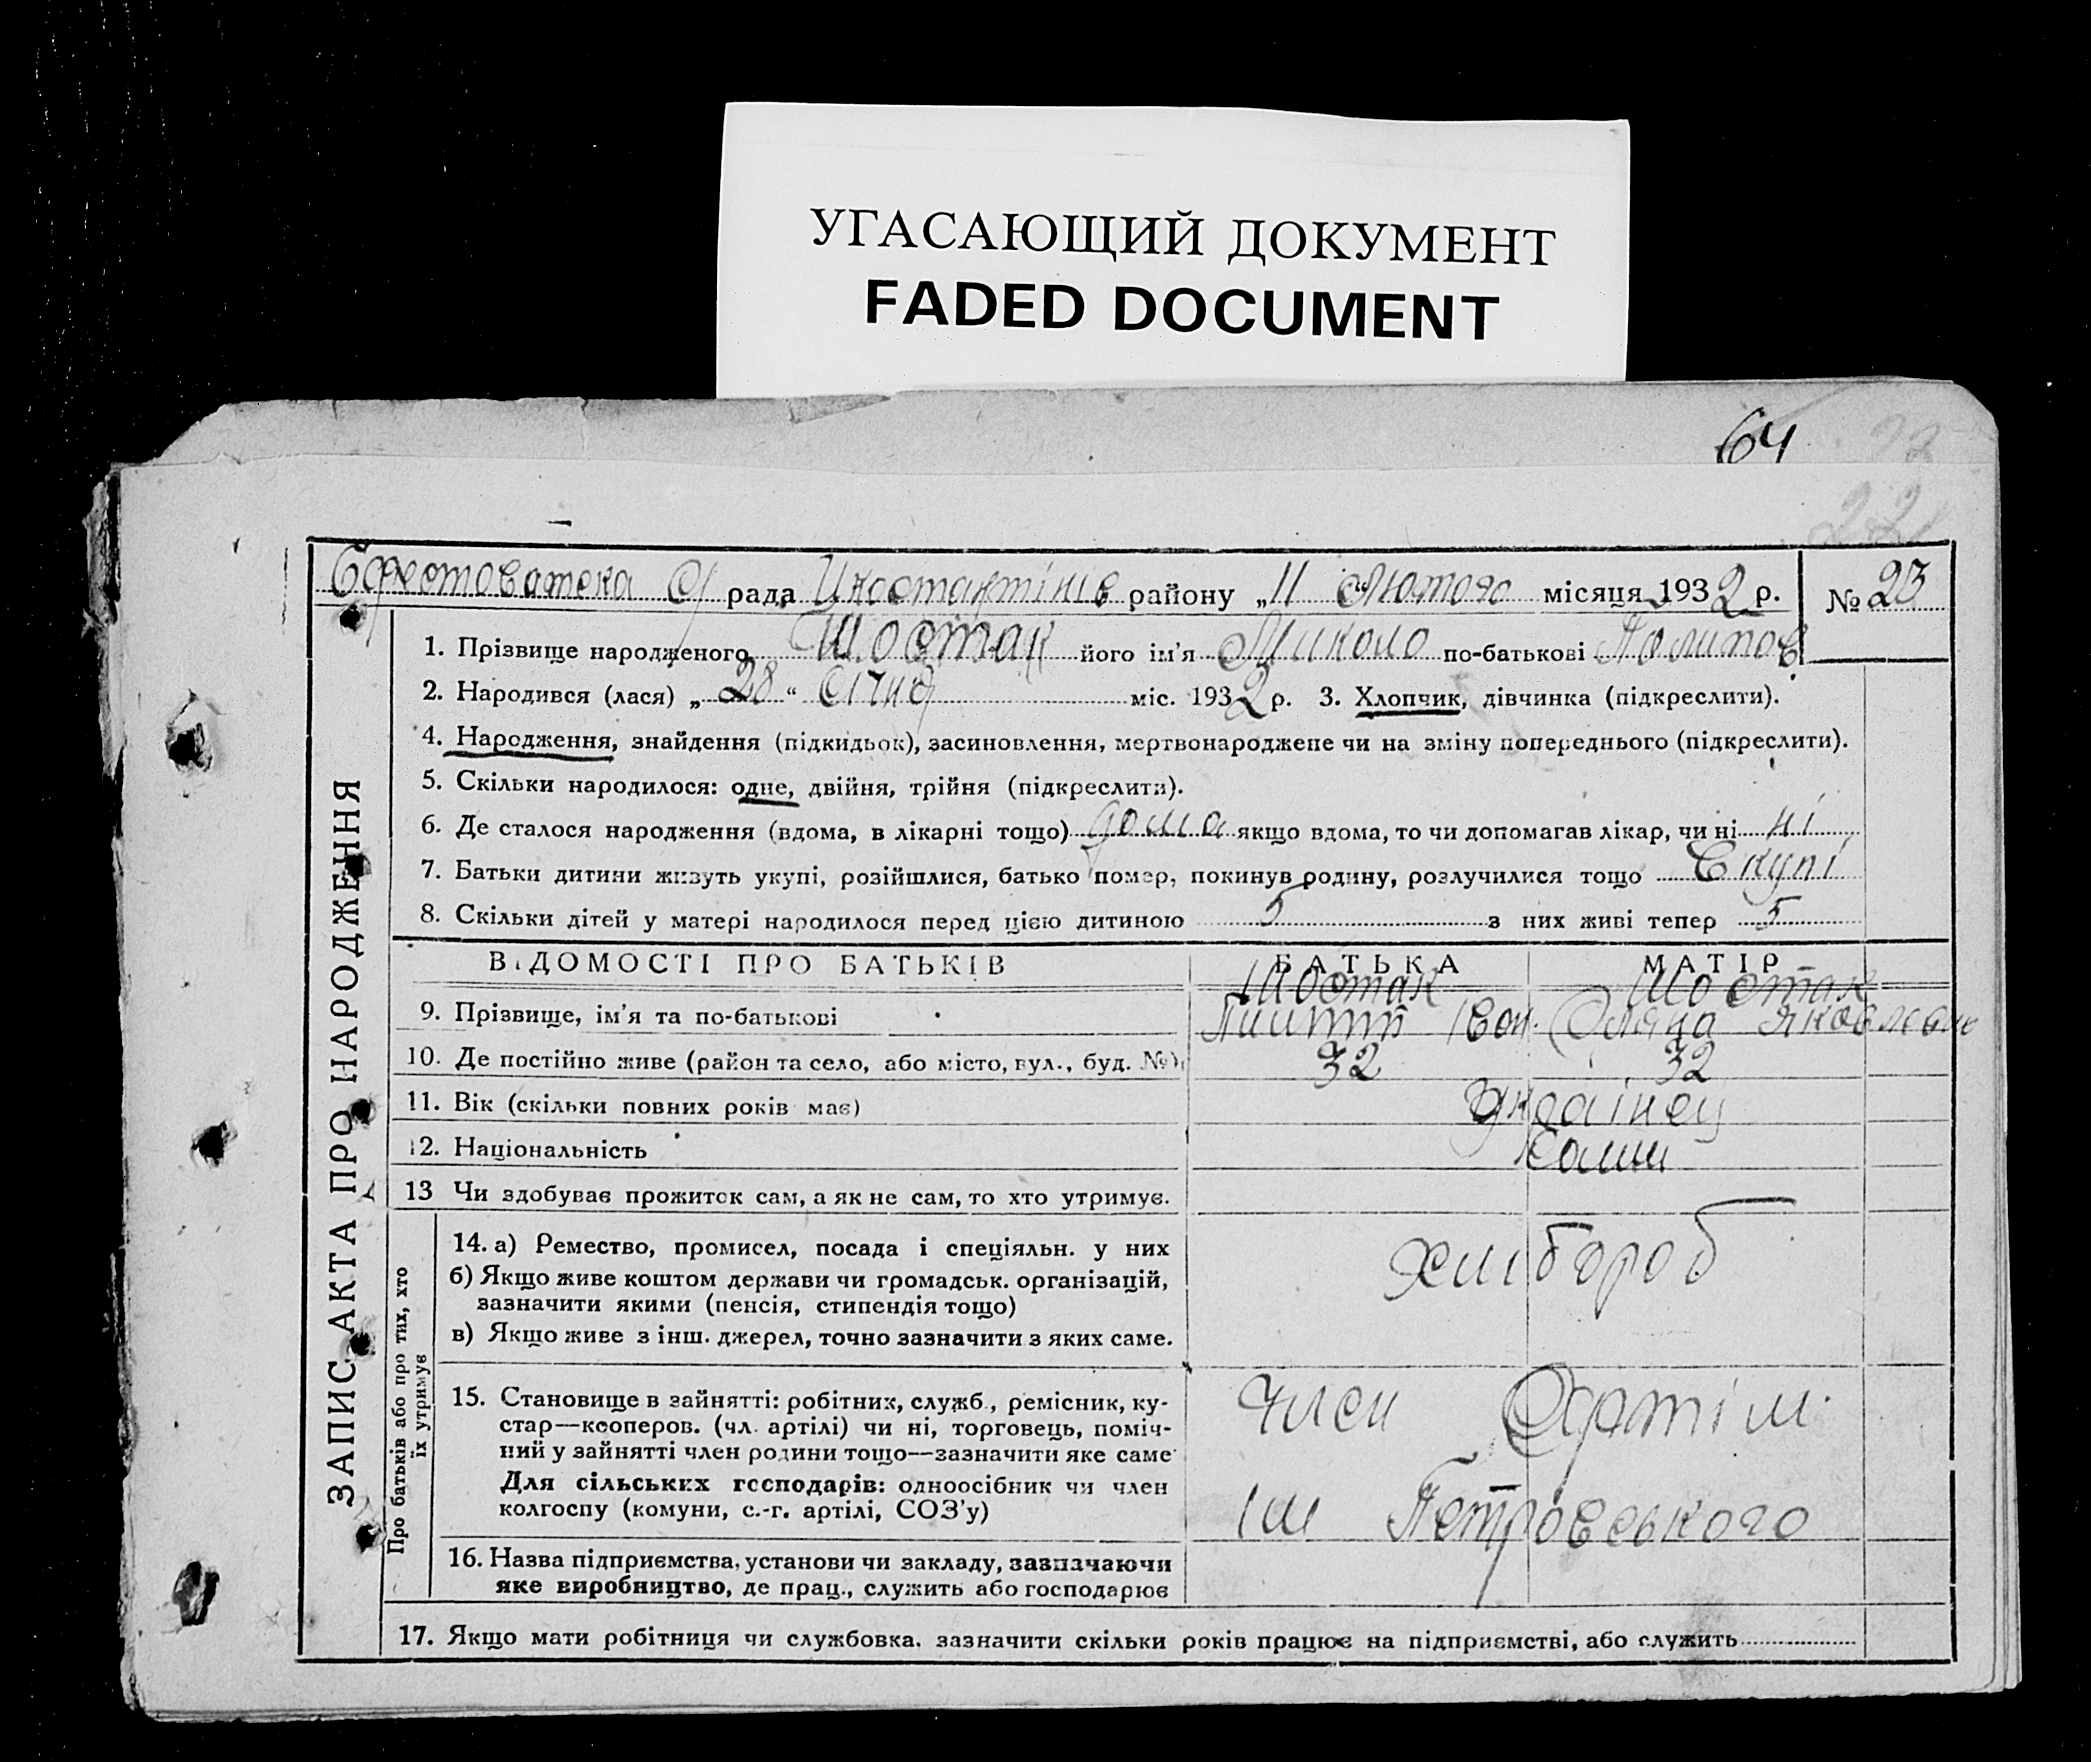 УГАСАЮЩИЙ ДОКУМЕНТ
FADED DOCUMENT
64
22
рада районy „11 " Лютого місяця 1932 р. № 23
ЗАПИС АКТА ПРО НАРОДЖЕННЯ
1. Прізвище народженого Шостак його ім'я Миколо по-батькові
2. Народився (лася) „ 28 “ Січня міс. 1932 р. 3. Хлопчик, дівчинка (підкреслити).
4. Народження, знайдення (підкидьок), засиновлення, мертвонароджене чи на зміну попереднього (підкреслити).
5. Скільки народилося: одне, двійня, трійня (підкреслити).
6. Де сталося народження (вдома, в лікарні тощо) дома якщо вдома, то чи допомагав лікар, чи ні ні
7. Батьки дитини живуть укупі, розійшлися, батько помер, покинув родину, розлучилися тощо Вкупі
8. Скільки дітей у матері народилося перед цією дитиною 5 з них живі тепер 5
ВІДОМОСТІ ПРО БАТЬКІВ БАТЬКА МАТІР
Шостак Шостак
9. Прізвище, ім'я та по-батькові
10. Де постійно живе (район та село, або місто, вул., буд. №) 32 32
11. Вік (скільки повних років має) Українец
12. Національність Сами
13 Чи здобуває прожиток сам, а як не сам, то хто утримує.
Про батьків або про тих, хто
їх утримує
14. а) Ремество, промисел, посада і спеціяльн. у них
б) Якщо живе коштом держави чи громадськ. організацій,
зазначити якими (пенсія, стипендія тощо)
в) Якщо живе з інш. джерел, точно зазначити з яких саме.
хлибороб
15. Становище в зайнятті: робітник, служб., ремісник, ку-
стар—кооперов. (чл. артілі) чи ні, торговець, поміч-
ний у зайнятті член родини тощо—зазначити яке саме
Для сільських господарів: одноосібник чи член
колгоспу (комуни, с.-г. артілі, СОЗ'у)
член Артіл.
ім Петровського
16. Назва підприємства, установи чи закладу, зазначаючи
яке виробництво, де прац., служить або господарює
17. Якщо мати робітниця чи службовка, зазначити скільки років працює на підприємстві, або служить